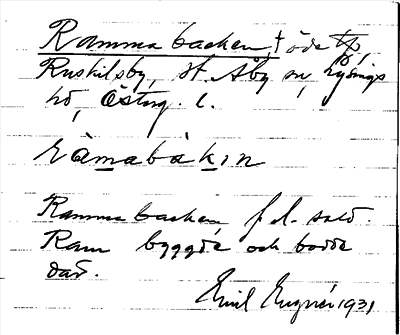 Rammabacken, † öde tp,
Ruskilsby, St. Åby sn, Lysings
hd, Österg. l.
ràmabàkın
Rammabacken, f.d. sold.
Ram byggde och bodde
där.
Emil Engnér 1931